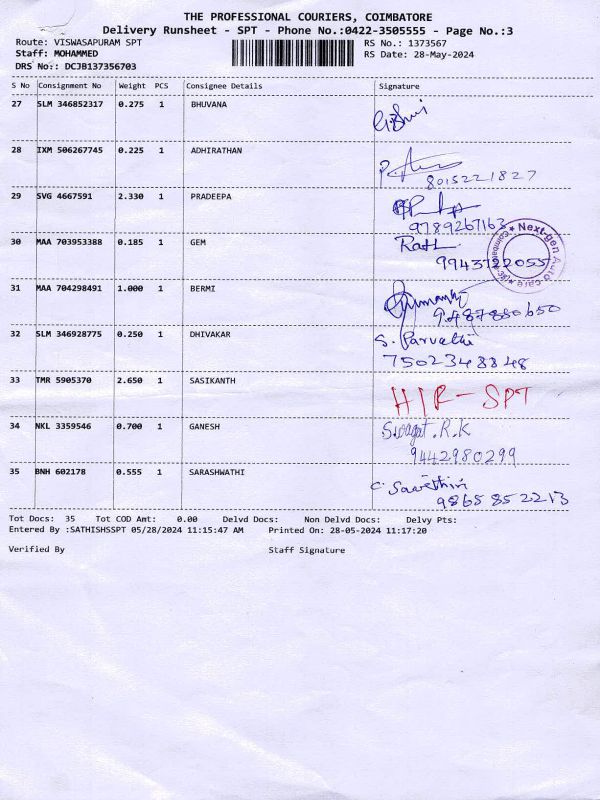 THE PROFESSIONAL COURIERS, COIMBATORE
Delivery Runsheet - SPT - Phone No.:0422-3505555 - Page No.:3
Route: VISWASAPURAM SPT RS No.: 1373567
Staff: MOHAMMED RS Date: 28-May-2024
DRS No:: DCJB137356703
S No Consignment No Weight PCS Consignee Details Signature
27 SLM 346852317 0.275 1 BHUVANA
28 IXM 506267745 0.225 1 ADHIRATHAN
8015221827
29 SVG 4667591 2.330 1 PRADEEPA
9789267163
30 MAA 703953388 0.185 1 GEM
9943722055
Next-gen Auto care
31 MAA 704298491 1.000 1 BERMI
9487850650
32 SLM 346928775 0.250 1 DHIVAKAR S. Parvathi
7502348848
33 TMR 5905370 2.650 1 SASIKANTH HIR-SPT
34 NKL 3359546 0.700 1 GANESH R.K
9442980299
35 BNH 602178 0.555 1 SARASHWATHI
9865852213
Tot Docs: 35 Tot COD Amt: 0.00 Delvd Docs: Non Delvd Docs: Delvy Pts:
Entered By :SATHISHSSPT 05/28/2024 11:15:47 AM Printed On: 28-05-2024 11:17:20
Verified By Staff Signature